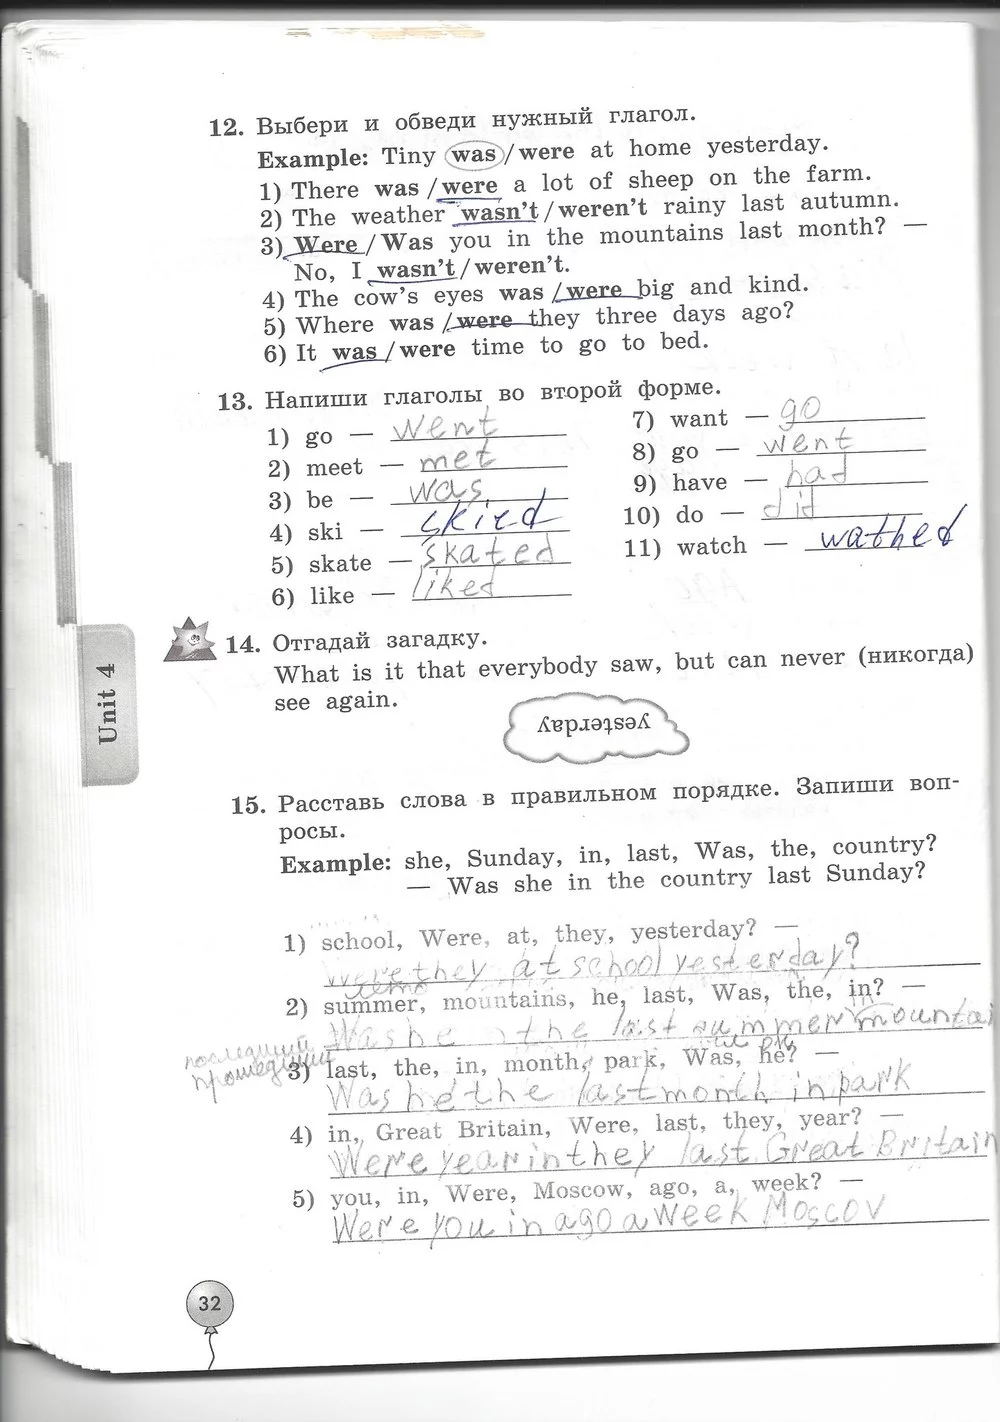 12. Выбери и обведи нужный глагол.
Example: Tiny was / were at home yesterday.
1) There was / were a lot of sheep on the farm.
2) The weather wasn't / weren't rainy last autumn.
3) Were / Was you in the mountains last month? —
No, I wasn't / weren't.
4) The cow's eyes was / were big and kind.
5) Where was / were they three days ago?
6) It was / were time to go to bed.
13. Напиши глаголы во второй форме.
1) go — went
2) meet — met
3) be — was
4) ski — skied
5) skate — skated
6) like — liked
7) want — go
8) go — went
9) have — had
10) do — did
11) watch — wathed
Unit 4
14. Отгадай загадку.
What is it that everybody saw, but can never (никогда)
see again.
yesterday
15. Расставь слова в правильном порядке. Запиши воп-
росы.
Example: she, Sunday, in, last, Was, the, country?
— Was she in the country last Sunday?
1) school, Were, at, they, yesterday? —
Were they at school yesterday?
лето
2) summer, mountains, he, last, Was, the, in? —
in
Was he the last summer mountai
последний
прошедший
3) last, the, in, month, park, Was, he? —
Was he the last month in park
4) in, Great Britain, Were, last, they, year? —
Were year in they last Great Britain
5) you, in, Were, Moscow, ago, a, week? —
Were you in ago a week Moscov
32